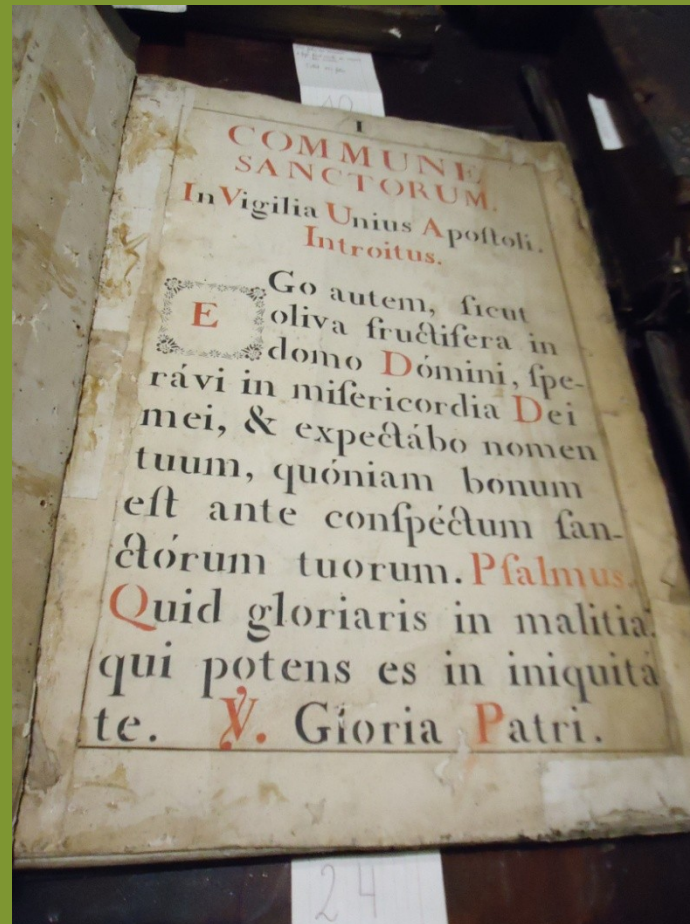 I
COMMUNE
SANCTORUM.
In Vigilia Unius Apoſtoli.
Introitus.
EGo autem, ſicut
oliva fructifera in
domo Dómini, ſpe-
rávi in miſericordia Dei
mei, & expectábo nomen
tuum, quóniam bonum
eſt ante conſpéctum ſan-
ctórum tuorum. Pſalmus.
Quid gloriaris in malitia:
qui potens es in iniquitá
te. ℣. Gloria Patri.
24